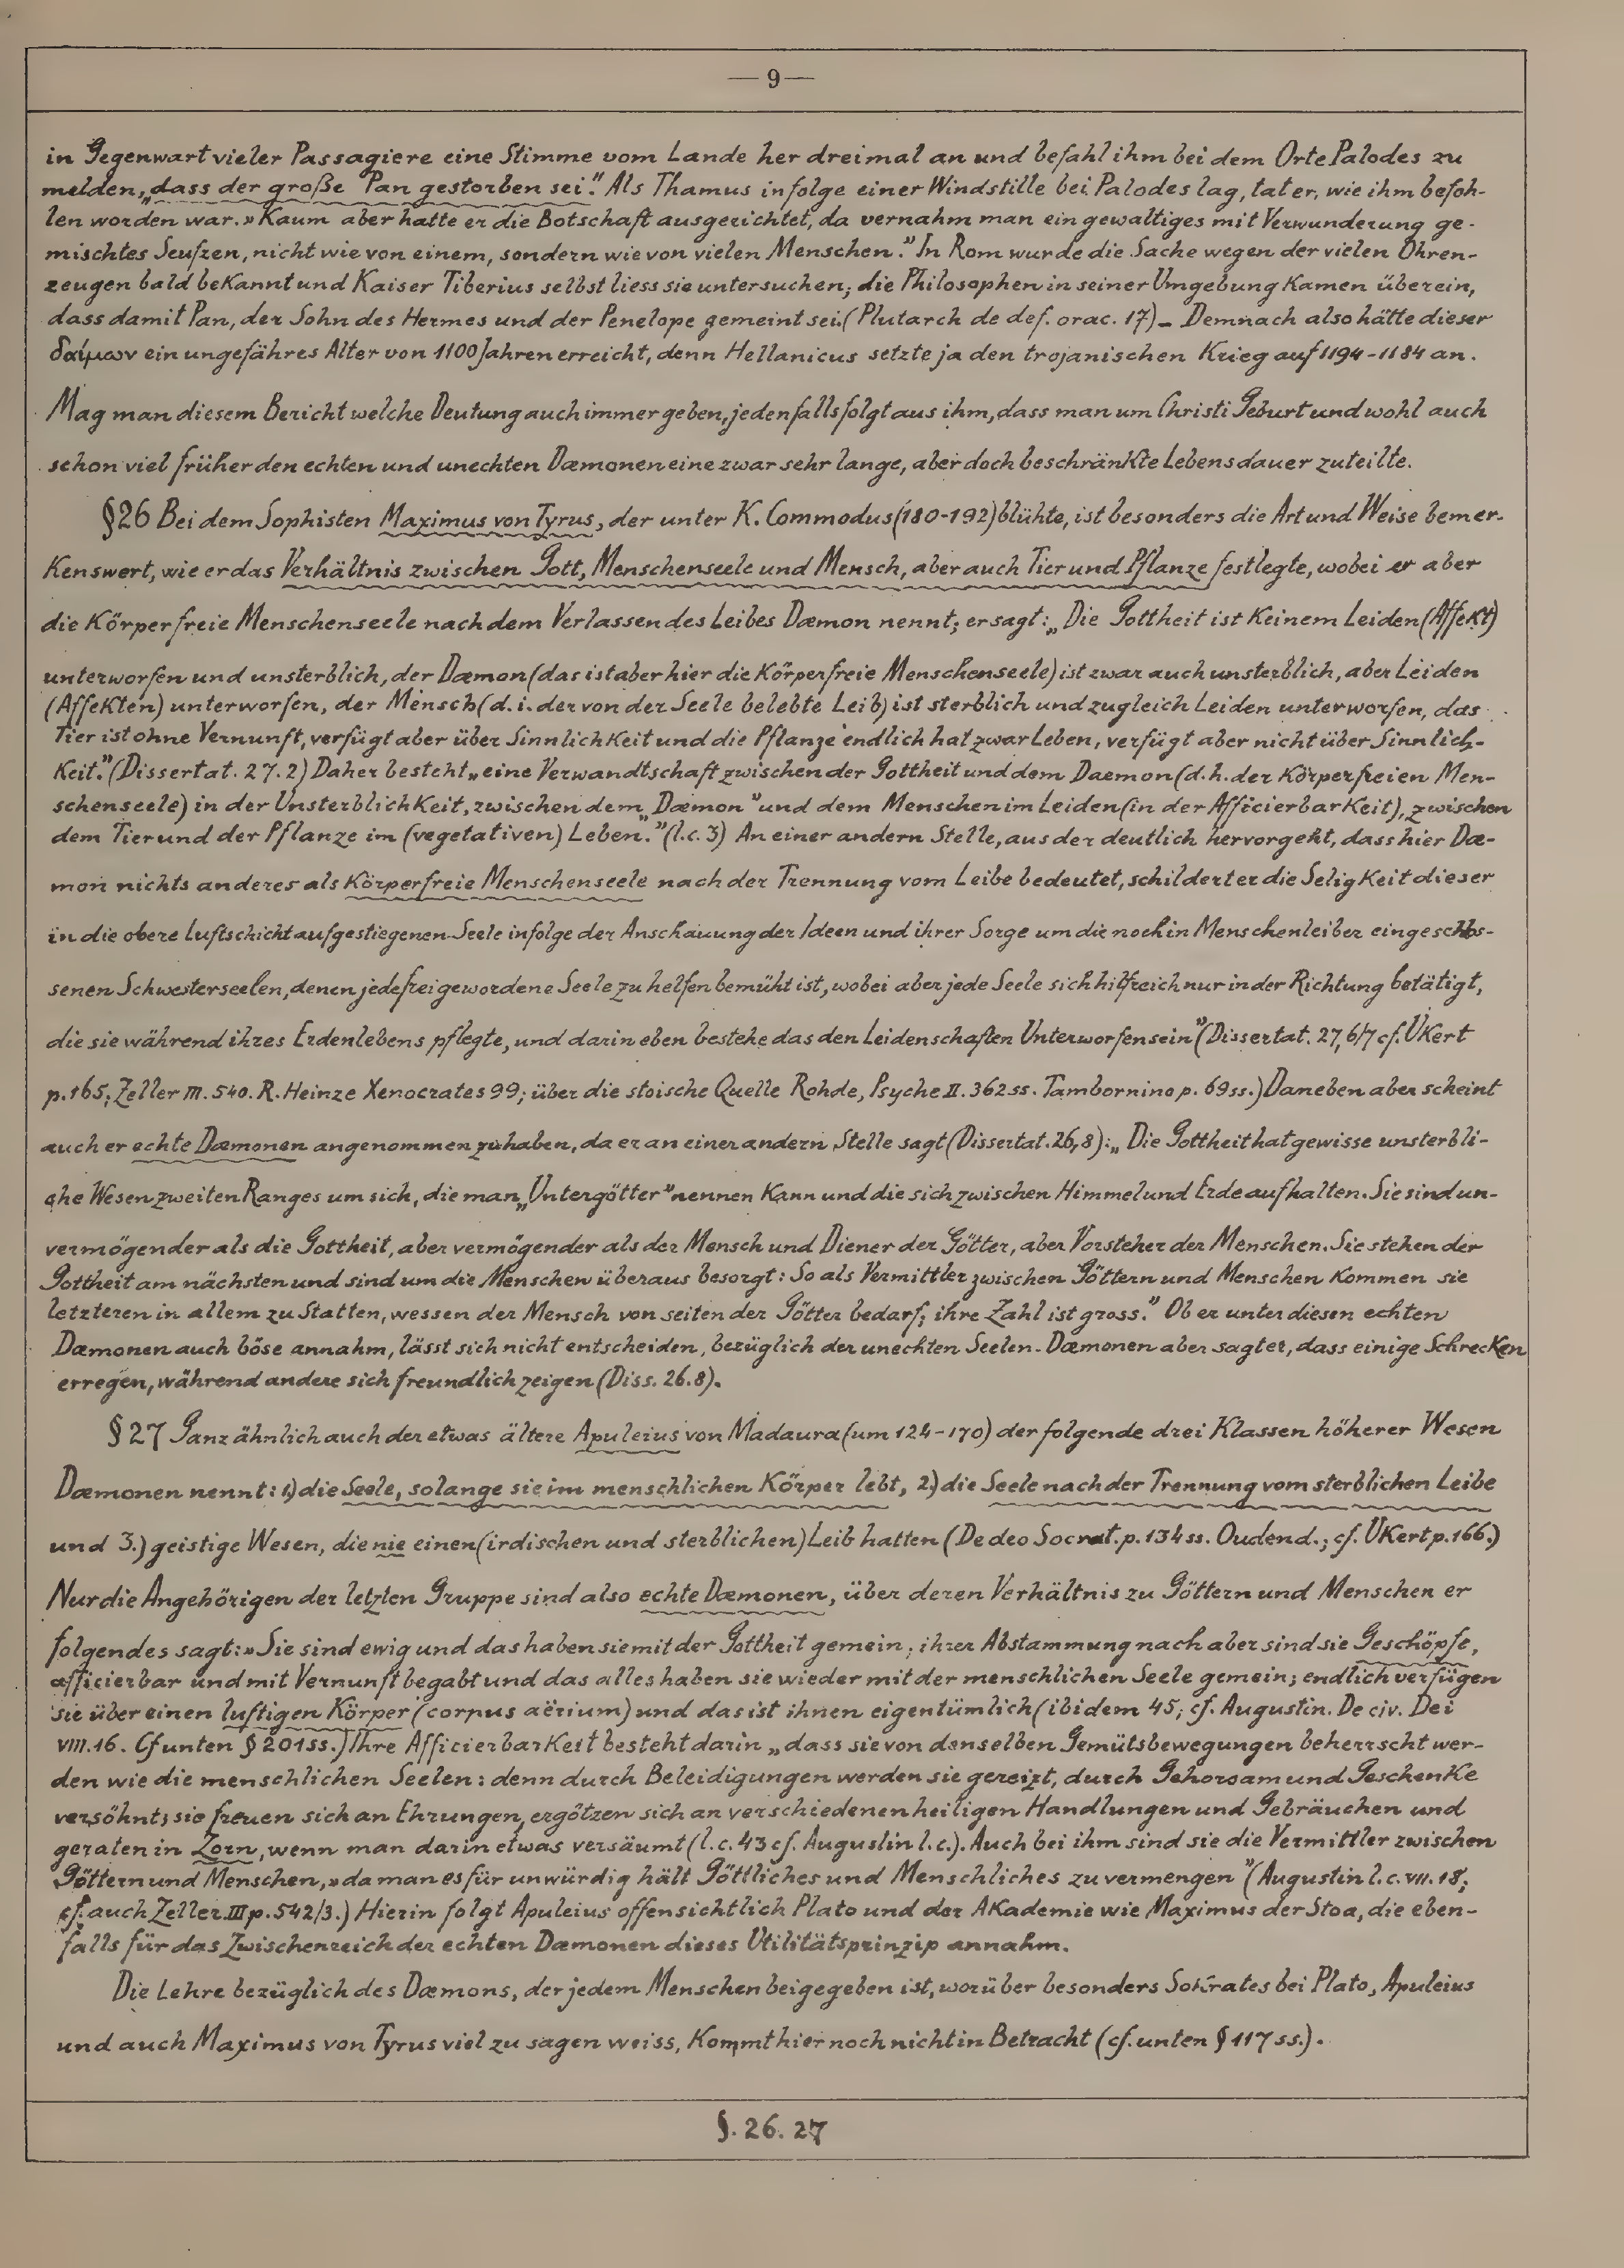 — 9 —
in Gegenwart vieler Passagiere eine Stimme vom Lande her dreimal an und befahl ihm bei dem Orte Palodes zu
melden, „dass der große Pan gestorben sei". Als Thamus infolge einer Windstille bei Palodes lag, tat er, wie ihm befoh-
len worden war. » Kaum aber hatte er die Botschaft ausgerichtet, da vernahm man ein gewaltiges mit Verwunderung ge-
mischtes Seufzen, nicht wie von einem, sondern wie von vielen Menschen." In Rom wurde die Sache wegen der vielen Ohren-
zeugen bald bekannt und Kaiser Tiberius selbst liess sie untersuchen; die Philosophen in seiner Umgebung kamen überein,
dass damit Pan, der Sohn des Hermes und der Penelope gemeint sei. (Plutarch de def. orac. 17) – Demnach also hätte dieser
δαίμων ein ungefähres Alter von 1100 Jahren erreicht, denn Hellanicus setzte ja den trojanischen Krieg auf 1194-1184 an.
Mag man diesem Bericht welche Deutung auch immer geben, jedenfalls folgt aus ihm, dass man um Christi Geburt und wohl auch
schon viel früher den echten und unechten Dæmonen eine zwar sehr lange, aber doch beschränkte Lebensdauer zuteilte.
§26 Bei dem Sophisten Maximus von Tyrus, der unter K. Commodus (180-192) blühte, ist besonders die Art und Weise bemer-
kenswert, wie er das Verhältnis zwischen Gott, Menschenseele und Mensch, aber auch Tier und Pflanze festlegte, wobei er aber
die körperfreie Menschenseele nach dem Verlassen des Leibes Dæmon nennt; er sagt: „Die Gottheit ist keinem Leiden (Affekt)
unterworfen und unsterblich, der Dæmon (das ist aber hier die körperfreie Menschenseele) ist zwar auch unsterblich, aber Leiden
(Affekten) unterworfen, der Mensch (d. i. der von der Seele belebte Leib) ist sterblich und zugleich Leiden unterworfen, das
Tier ist ohne Vernunft, verfügt aber über Sinnlichkeit und die Pflanze endlich hat zwar Leben, verfügt aber nicht über Sinnlich-
keit." (Dissertat. 27. 2) Daher besteht „eine Verwandtschaft zwischen der Gottheit und dem Daemon (d. h. der körperfreien Men-
schenseele) in der Unsterblichkeit, zwischen dem „Dæmon" und dem Menschen im Leiden (in der Afficierbarkeit), zwischen
dem Tier und der Pflanze im (vegetativen) Leben." (l. c. 3) An einer andern Stelle, aus der deutlich hervorgeht, dass hier Dæ-
mon nichts anderes als körperfreie Menschenseele nach der Trennung vom Leibe bedeutet, schildert er die Seligkeit dieser
in die obere Luftschicht aufgestiegenen Seele infolge der Anschauung der Ideen und ihrer Sorge um die noch in Menschenleiber eingeschlos-
senen Schwesterseelen, denen jede freigewordene Seele zu helfen bemüht ist, wobei aber jede Seele sich hilfreich nur in der Richtung betätigt,
die sie während ihres Erdenlebens pflegte, und darin eben bestehe das den Leidenschaften Unterworfensein" (Dissertat. 27, 6/7 cf. Ukert
p. 165; Zeller III. 540. R. Heinze Xenocrates 99; über die stoische Quelle Rohde, Psyche II. 362 ss. Tambornino p. 69 ss.) Daneben aber scheint
auch er echte Dæmonen angenommen zu haben, da er an einer andern Stelle sagt (Dissertat. 26, 8): „Die Gottheit hat gewisse unsterbli-
che Wesen zweiten Ranges um sich, die man „Untergötter" nennen kann und die sich zwischen Himmel und Erde aufhalten. Sie sind un-
vermögender als die Gottheit, aber vermögender als der Mensch und Diener der Götter, aber Vorsteher der Menschen. Sie stehen der
Gottheit am nächsten und sind um die Menschen überaus besorgt: So als Vermittler zwischen Göttern und Menschen kommen sie
letzteren in allem zu Statten, wessen der Mensch von seiten der Götter bedarf; ihre Zahl ist gross." Ob er unter diesen echten
Dæmonen auch böse annahm, lässt sich nicht entscheiden, bezüglich der unechten Seelen-Dæmonen aber sagt er, dass einige Schrecken
erregen, während andere sich freundlich zeigen (Diss. 26. 8).
§27 Ganz ähnlich auch der etwas ältere Apuleius von Madaura (um 124-170) der folgende drei Klassen höherer Wesen
Dæmonen nennt: 1.) die Seele, solange sie im menschlichen Körper lebt, 2.) die Seele nach der Trennung vom sterblichen Leibe
und 3.) geistige Wesen, die nie einen (irdischen und sterblichen) Leib hatten (De deo Socrat. p. 134 ss. Oudend.; cf. Ukert p. 166.)
Nur die Angehörigen der letzten Gruppe sind also echte Dæmonen, über deren Verhältnis zu Göttern und Menschen er
folgendes sagt: » Sie sind ewig und das haben sie mit der Gottheit gemein; ihrer Abstammung nach aber sind sie Geschöpfe,
afficierbar und mit Vernunft begabt und das alles haben sie wieder mit der menschlichen Seele gemein; endlich verfügen
sie über einen luftigen Körper (corpus aërium) und das ist ihnen eigentümlich (ibidem 45; cf. Augustin. De civ. Dei
VIII. 16. Cf unten § 201 ss.) Ihre Afficierbarkeit besteht darin „dass sie von denselben Gemütsbewegungen beherrscht wer-
den wie die menschlichen Seelen: denn durch Beleidigungen werden sie gereizt, durch Gehorsam und Geschenke
versöhnt; sie freuen sich an Ehrungen, ergötzen sich an verschiedenen heiligen Handlungen und Gebräuchen und
geraten in Zorn, wenn man darin etwas versäumt (l. c. 43 cf. Augustin l. c.). Auch bei ihm sind sie die Vermittler zwischen
Göttern und Menschen, » da man es für unwürdig hält Göttliches und Menschliches zu vermengen" (Augustin l. c. VII. 18;
cf. auch Zeller III p. 542/3.) Hierin folgt Apuleius offensichtlich Plato und der Akademie wie Maximus der Stoa, die eben-
falls für das Zwischenreich der echten Dæmonen dieses Utilitätsprinzip annahm.
Die Lehre bezüglich des Dæmons, der jedem Menschen beigegeben ist, worüber besonders Sokrates bei Plato, Apuleius
und auch Maximus von Tyrus viel zu sagen weiss, kommt hier noch nicht in Betracht (cf. unten § 117 ss.).
§. 26. 27